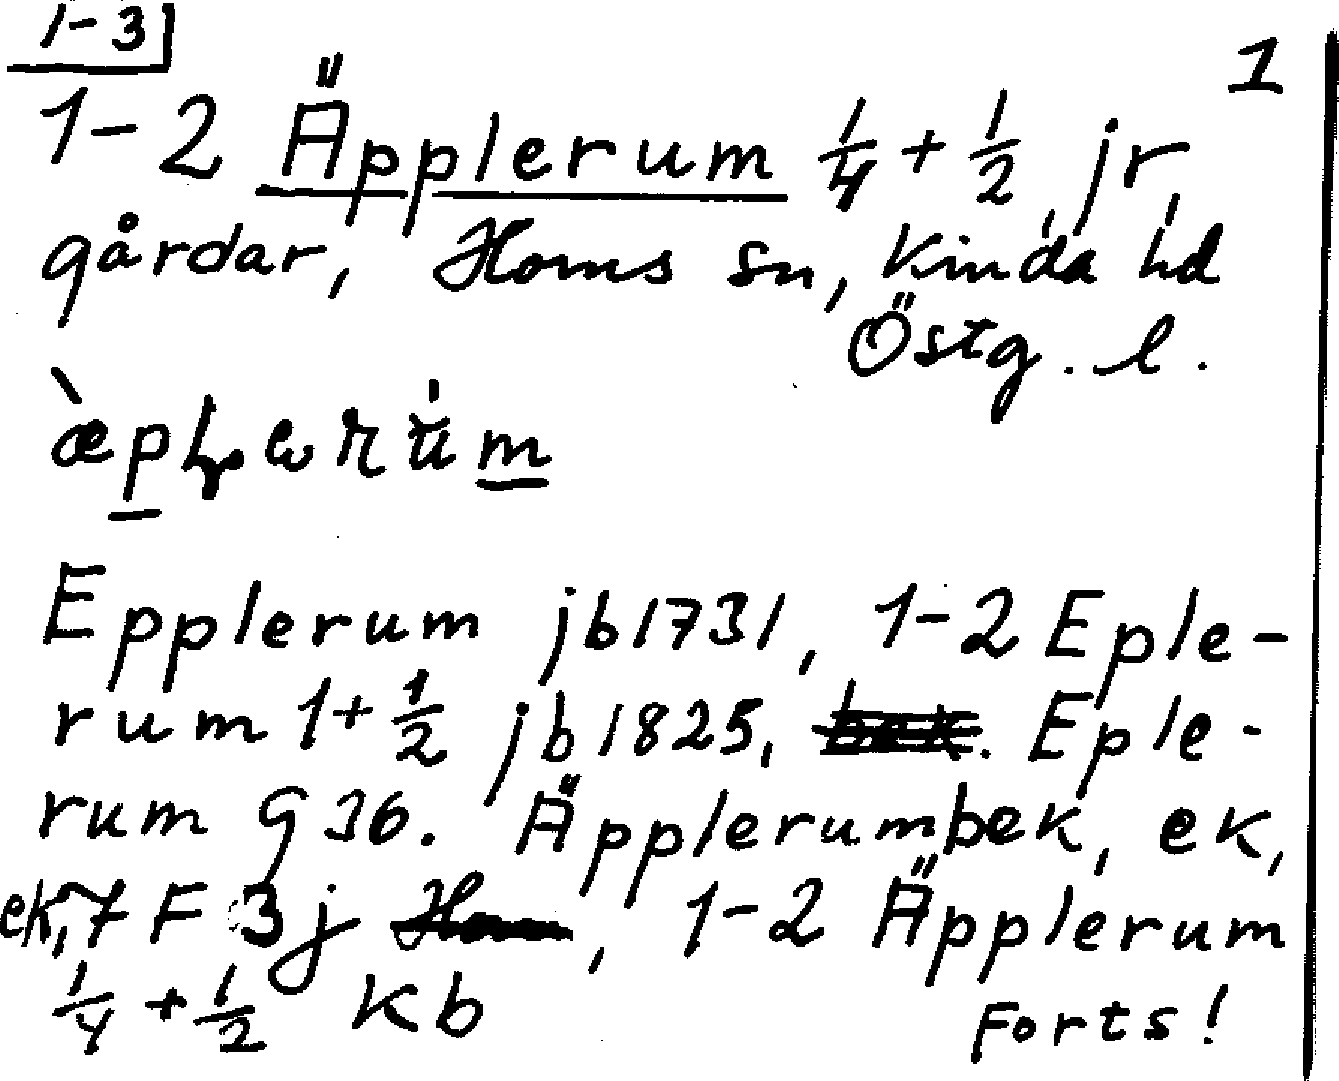 1-3
1
1-2 Äpplerum 1/4 + 1/2 jr,
gårdar, Horns sn, Kinda hd
Östg. l.
Epplerum jb1731, 1-2 Eple-
rum 1+1/2 jb1825, Eple-
rum G36. Äpplerum bek, ek,
ek, 7F 3j, 1-2 Äpplerum
1/4 + 1/2 Kb
Forts!